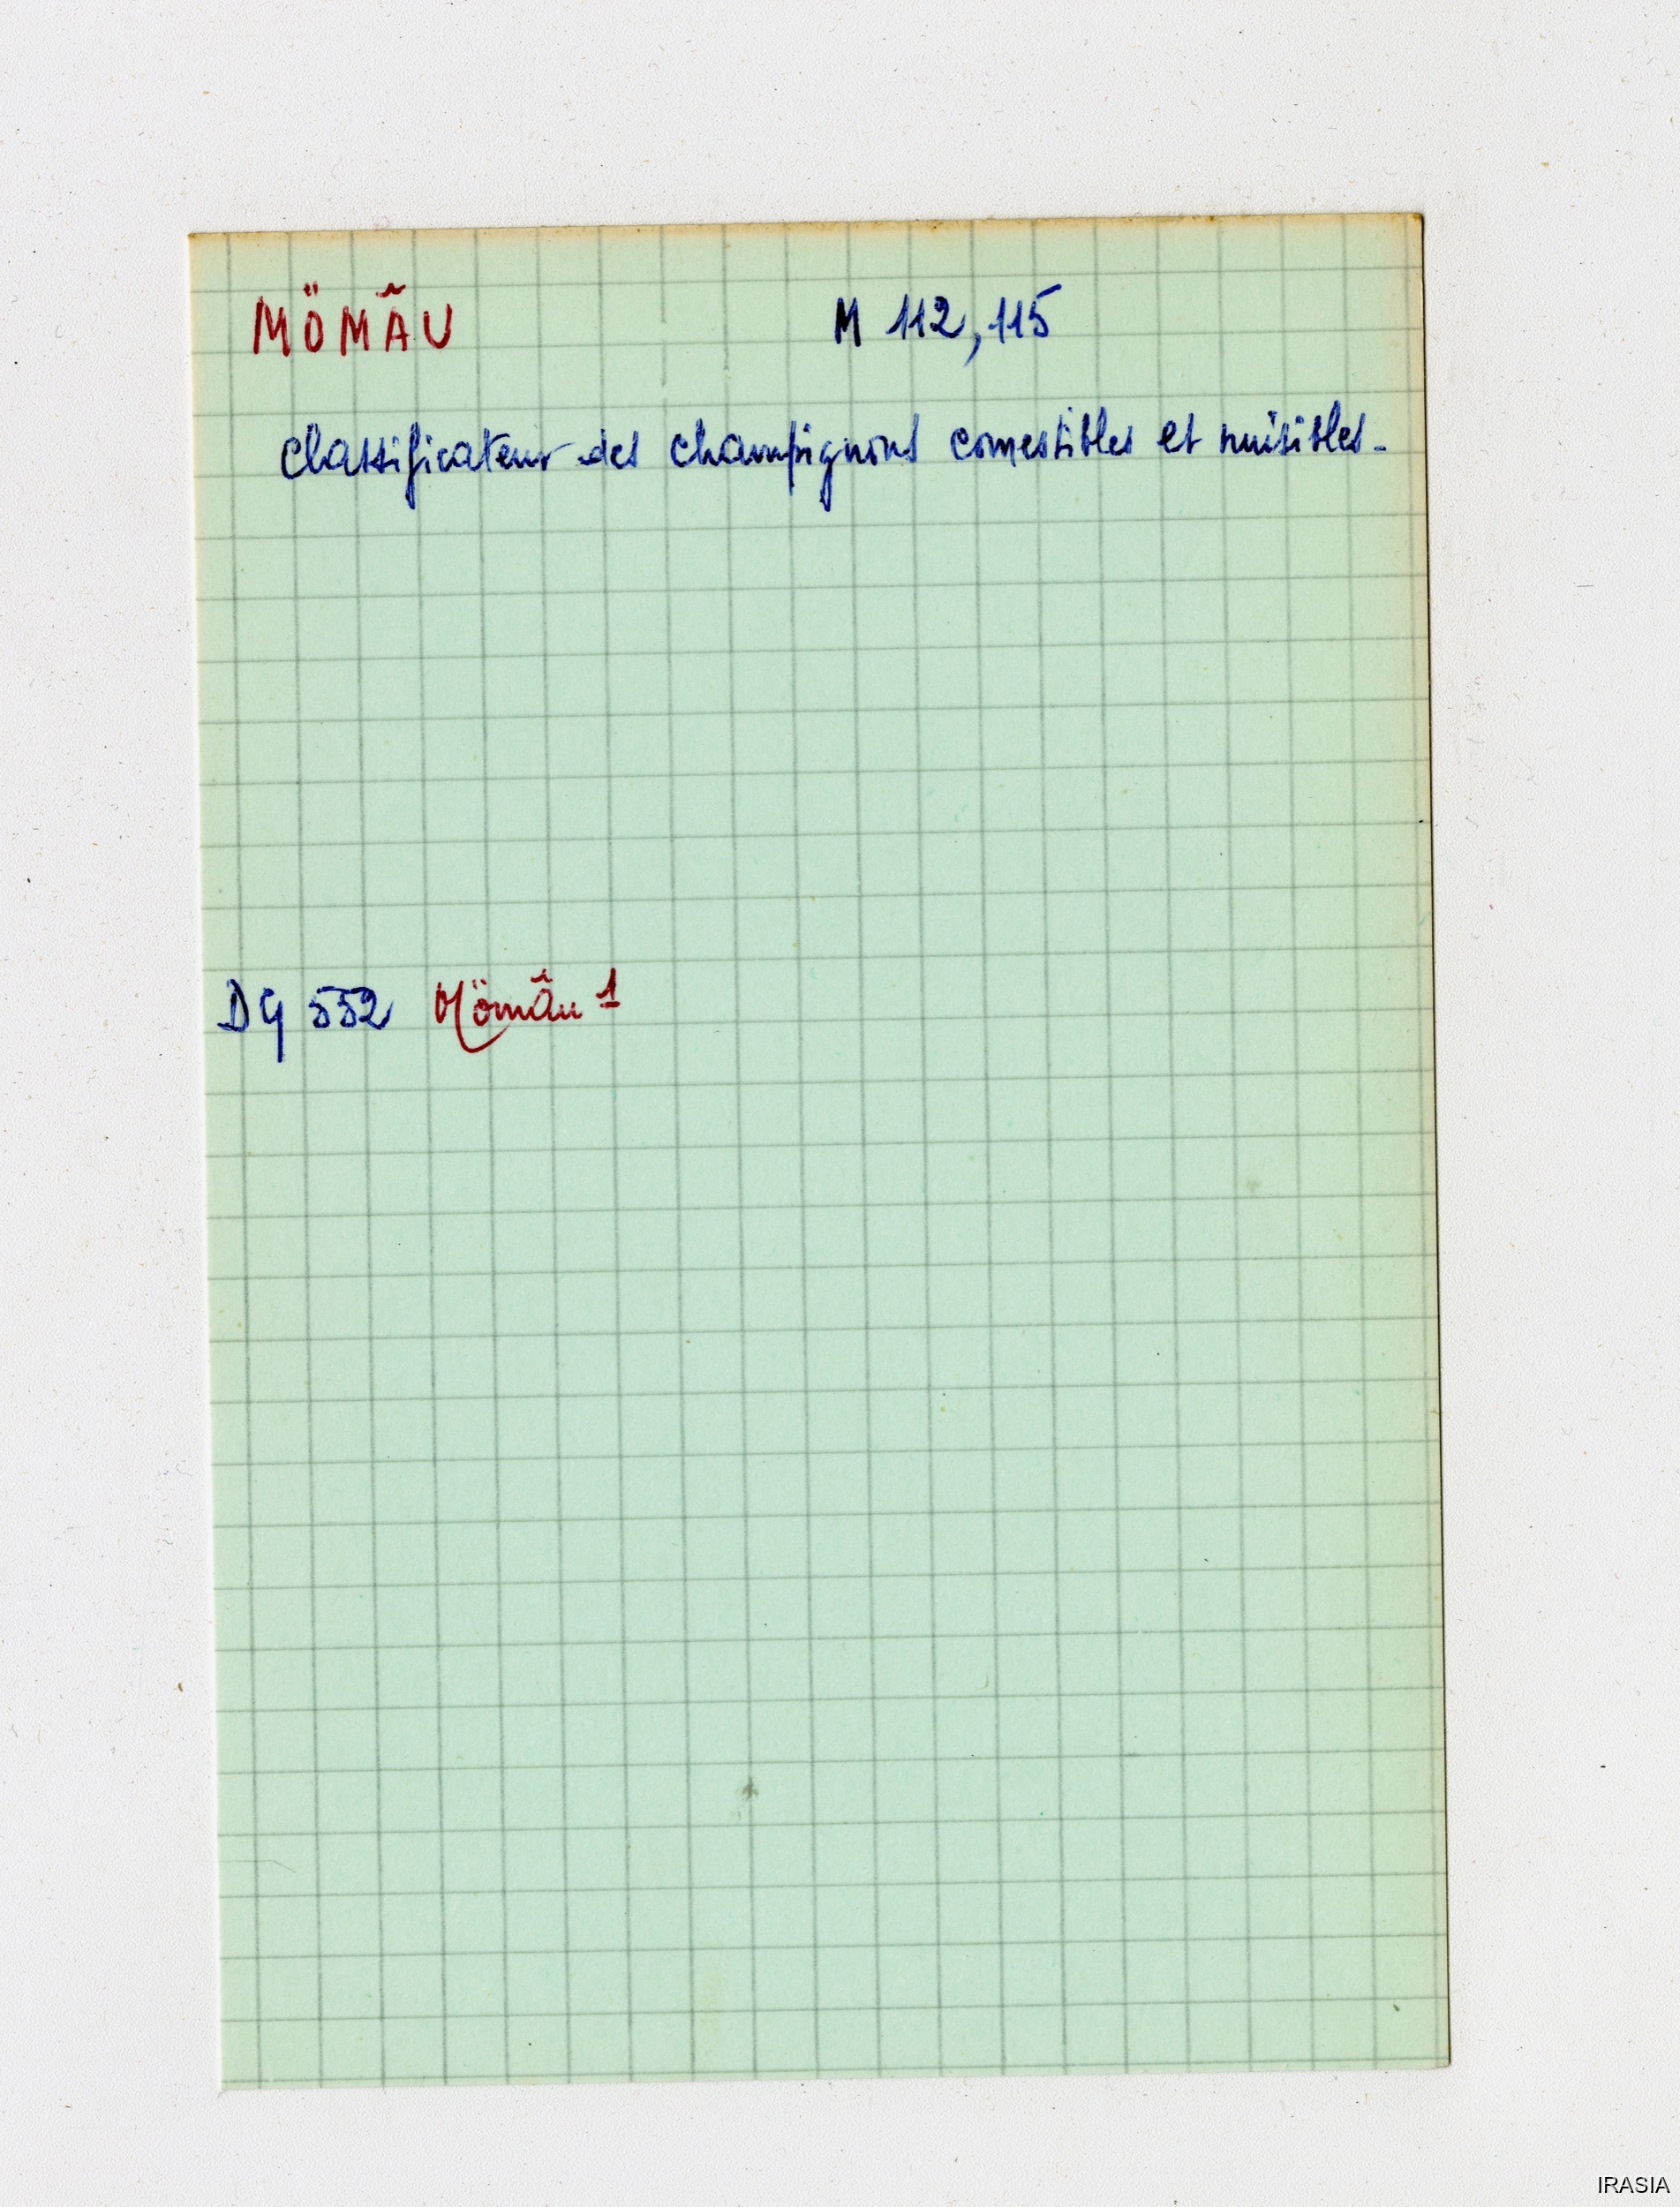 MÖMÂU M 112, 115
Classificateur des champignons comestibles et nuisibles.
DG 552 Mömâu 1
IRASIA